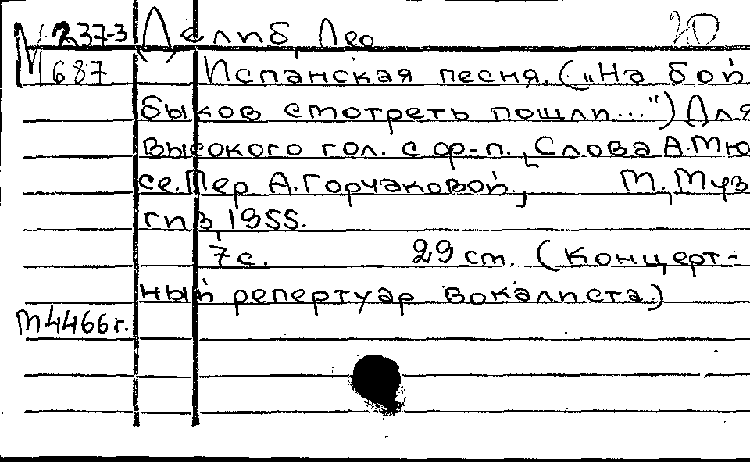 М 237-3 Делиб, Лео 20
687 Испанская песня. („На бой
быков смотреть пошли...") Для
высокого гол. с ф-п., Слова А.Мю
се. Пер А. Горчаковой, М., Муз
гиз, 1955.
7с. 29 ст. (Концерт-
ный репертуар вокалиста.)
м4466г.